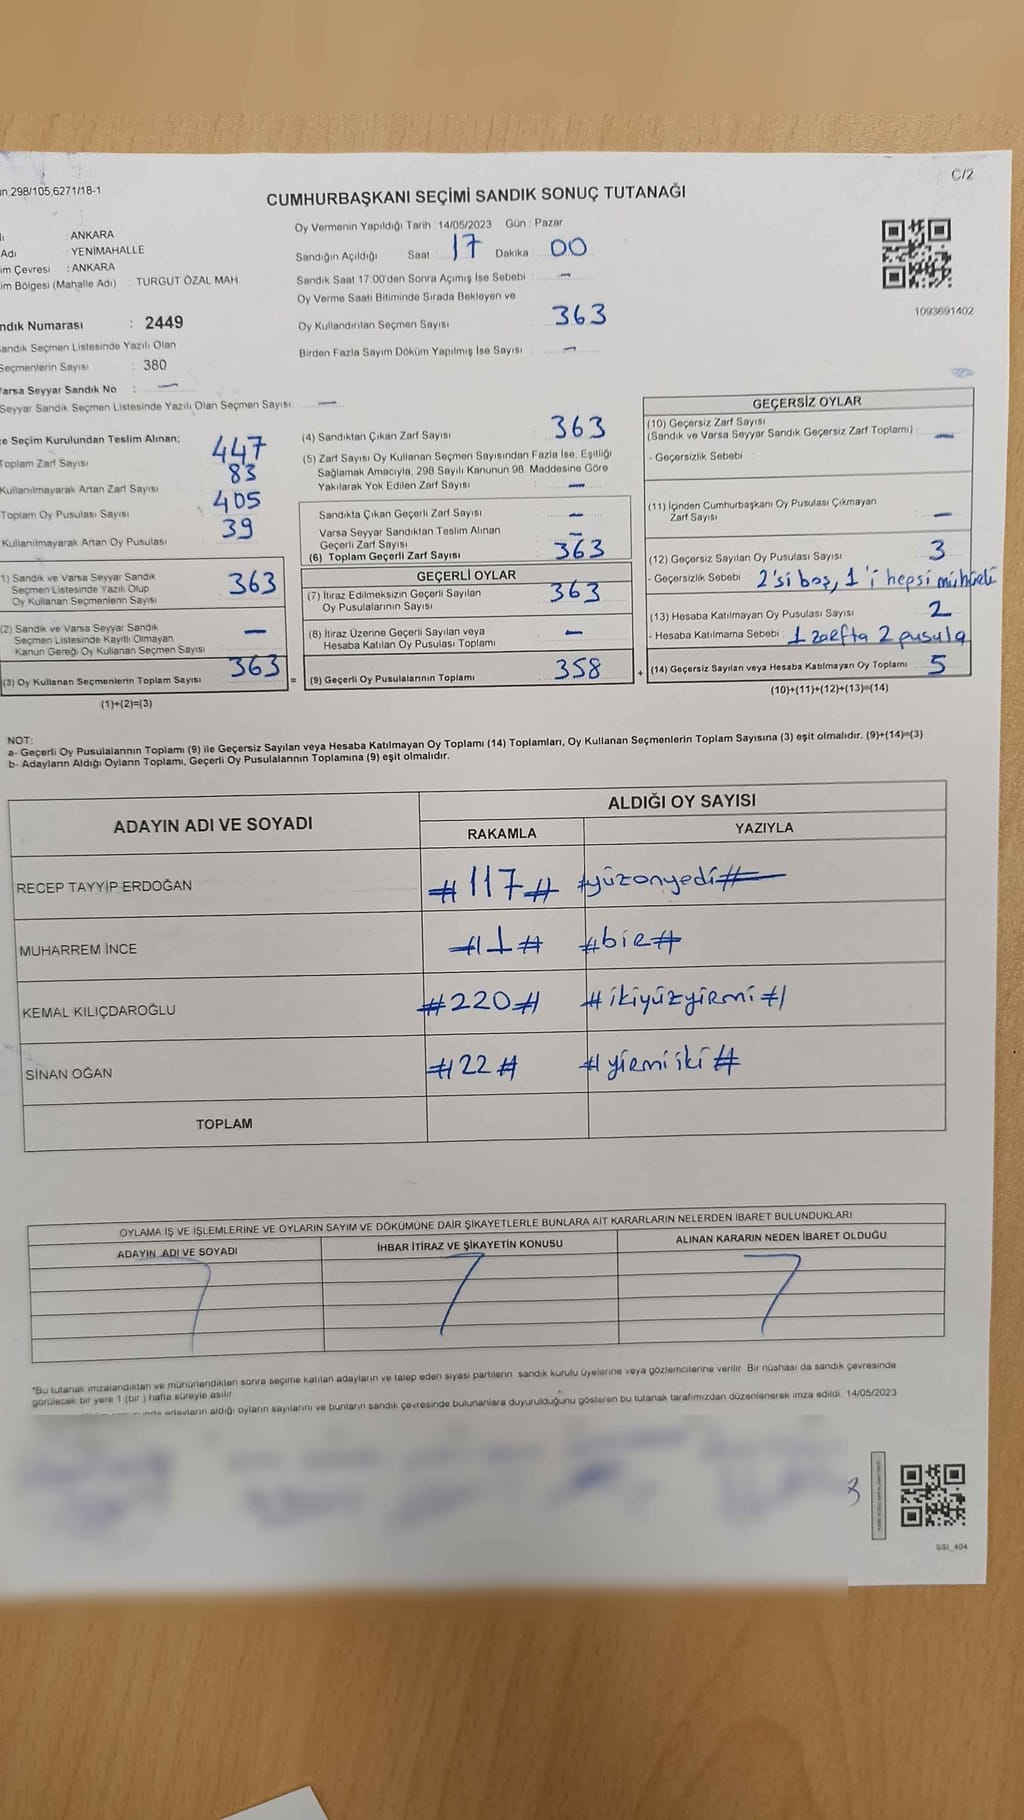 C/2
298/105,6271/18-1
CUMHURBAŞKANI SEÇİMİ SANDIK SONUÇ TUTANAĞI
: ANKARA
Adı : YENİMAHALLE
Çevresi : ANKARA
Bölgesi (Mahalle Adı) : TURGUT ÖZAL MAH.
Numarası : 2449
Sandık Seçmen Listesinde Yazılı Olan
Seçmenlerin Sayısı : 380
Varsa Seyyar Sandık No : —
Seyyar Sandık Seçmen Listesinde Yazılı Olan Seçmen Sayısı: —
Oy Vermenin Yapıldığı Tarih : 14/05/2023 Gün : Pazar
Sandığın Açıldığı Saat : 17 Dakika : 00
Sandık Saat 17:00'den Sonra Açımış İse Sebebi : —
Oy Verme Saati Bitiminde Sırada Bekleyen ve
Oy Kullandırılan Seçmen Sayısı : 363
Birden Fazla Sayım Döküm Yapılmış İse Sayısı : —
1093691402
Seçim Kurulundan Teslim Alınan;
Toplam Zarf Sayısı 447
Kullanılmayarak Artan Zarf Sayısı 83
Toplam Oy Pusulası Sayısı 405
Kullanılmayarak Artan Oy Pusulası 39
1) Sandık ve Varsa Seyyar Sandık
Seçmen Listesinde Yazılı Olup
Oy Kullanan Seçmenlerin Sayısı 363
(2) Sandık ve Varsa Seyyar Sandık
Seçmen Listesinde Kayıtlı Olmayan
Kanun Gereği Oy Kullanan Seçmen Sayısı —
(3) Oy Kullanan Seçmenlerin Toplam Sayısı 363
(1)+(2)=(3)
(4) Sandıktan Çıkan Zarf Sayısı 363
(5) Zarf Sayısı Oy Kullanan Seçmen Sayısından Fazla İse, Eşitliği
Sağlamak Amacıyla; 298 Sayılı Kanunun 98. Maddesine Göre
Yakılarak Yok Edilen Zarf Sayısı —
Sandıkta Çıkan Geçerli Zarf Sayısı —
Varsa Seyyar Sandıktan Teslim Alınan
Geçerli Zarf Sayısı —
(6) Toplam Geçerli Zarf Sayısı 363
GEÇERLİ OYLAR
(7) İtiraz Edilmeksizin Geçerli Sayılan
Oy Pusulalarının Sayısı 363
(8) İtiraz Üzerine Geçerli Sayılan veya
Hesaba Katılan Oy Pusulası Toplamı —
= (9) Geçerli Oy Pusulalarının Toplamı 358 +
GEÇERSİZ OYLAR
(10) Geçersiz Zarf Sayısı
(Sandık ve Varsa Seyyar Sandık Geçersiz Zarf Toplamı) : —
- Geçersizlik Sebebi :
(11) İçinden Cumhurbaşkanı Oy Pusulası Çıkmayan
Zarf Sayısı —
(12) Geçersiz Sayılan Oy Pusulası Sayısı 3
- Geçersizlik Sebebi : 2'si boş, 1'i hepsi mühürlü
(13) Hesaba Katılmayan Oy Pusulası Sayısı 2
- Hesaba Katılmama Sebebi : 1 zarfta 2 pusula
(14) Geçersiz Sayılan veya Hesaba Katılmayan Oy Toplamı 5
(10)+(11)+(12)+(13)=(14)
NOT:
a- Geçerli Oy Pusulalarının Toplamı (9) ile Geçersiz Sayılan veya Hesaba Katılmayan Oy Toplamı (14) Toplamları, Oy Kullanan Seçmenlerin Toplam Sayısına (3) eşit olmalıdır. (9)+(14)=(3)
b- Adayların Aldığı Oyların Toplamı, Geçerli Oy Pusulalarının Toplamına (9) eşit olmalıdır.
ADAYIN ADI VE SOYADI ALDIĞI OY SAYISI
RAKAMLA YAZIYLA
RECEP TAYYİP ERDOĞAN #117# #yüzonyedi#
MUHARREM İNCE #1# #bir#
KEMAL KILIÇDAROĞLU #220# #ikiyüzyirmi#
SİNAN OĞAN #22# #yirmiiki#
TOPLAM
OYLAMA İŞ VE İŞLEMLERİNE VE OYLARIN SAYIM VE DÖKÜMÜNE DAİR ŞİKAYETLERLE BUNLARA AİT KARARLARIN NELERDEN İBARET BULUNDUKLARI
ADAYIN ADI VE SOYADI İHBAR İTİRAZ VE ŞİKAYETİN KONUSU ALINAN KARARIN NEDEN İBARET OLDUĞU
*Bu tutanak imzalandıktan ve mühürlendikten sonra seçime katılan adayların ve talep eden siyasi partilerin sandık kurulu üyelerine veya gözlemcilerine verilir. Bir nüshası da sandık çevresinde
görülecek bir yere 1 (bir ) hafta süreyle asılır.
adayların aldığı oyların sayılarını ve bunların sandık çevresinde bulunanlara duyurulduğunu gösteren bu tutanak tarafımızdan düzenlenerek imza edildi. 14/05/2023
SSI_404